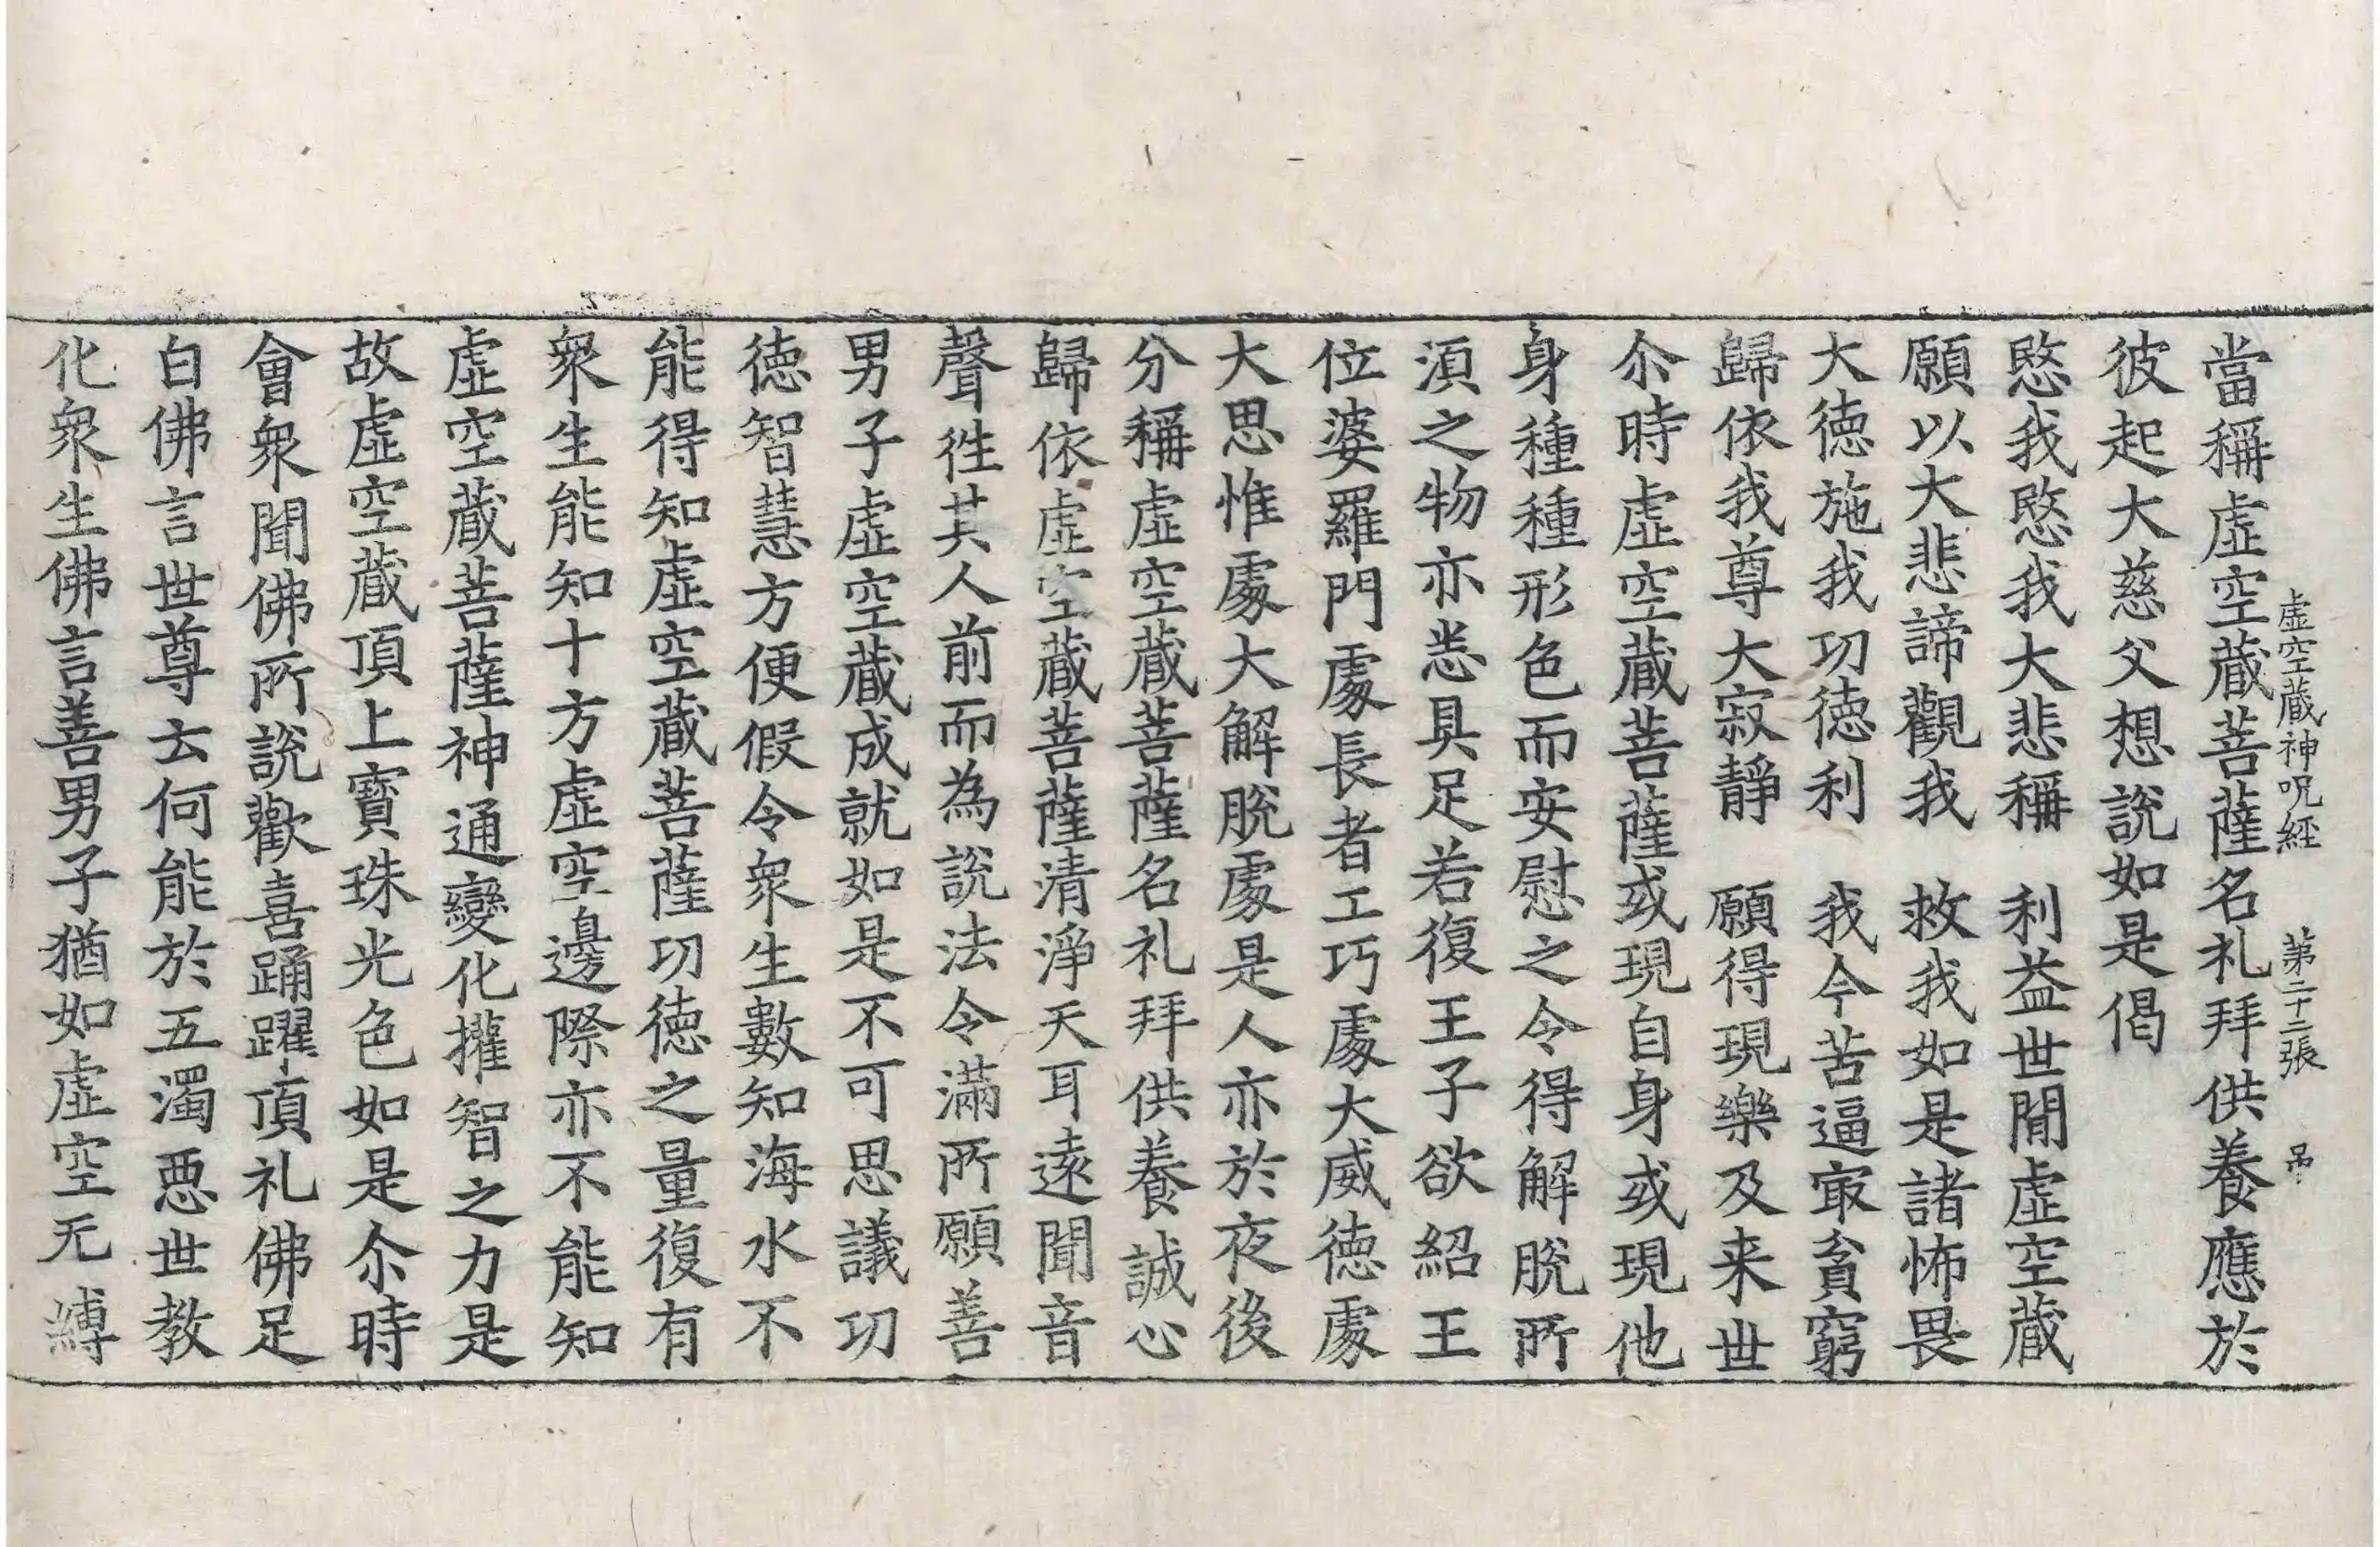 虛空藏神呪經 第二十二張 吊
當稱虛空藏菩薩名礼拜供養應於
彼起大慈父想說如是偈
愍我愍我大悲稱 利益世閒虛空藏
願以大悲諦觀我 救我如是諸怖畏
大德施我功德利 我今苦逼㝡貧窮
歸依我尊大寂靜 願得現樂及来世
尒時虛空藏菩薩或現自身或現他
身種種形色而安慰之令得解脫所
湏之物亦悉具足若復王子欲紹王
位婆羅門處長者工巧處大威德處
大思惟處大解脫處是人亦於夜後
分稱虛空藏菩薩名礼拜供養誠心
歸依虛空藏菩薩清淨天耳遠聞音
聲徃其人前而為說法令滿所願善
男子虛空藏成就如是不可思議功
德智慧方便假令衆生數知海水不
能得知虛空藏菩薩功德之量復有
衆生能知十方虛空邊際亦不能知
虛空藏菩薩神通變化攉智之力是
故虛空藏頂上寶珠光色如是尒時
會衆聞佛所說歡喜踊躍頂礼佛足
白佛言世尊云何能於五濁惡世教
化衆生佛言善男子猶如虛空无縛